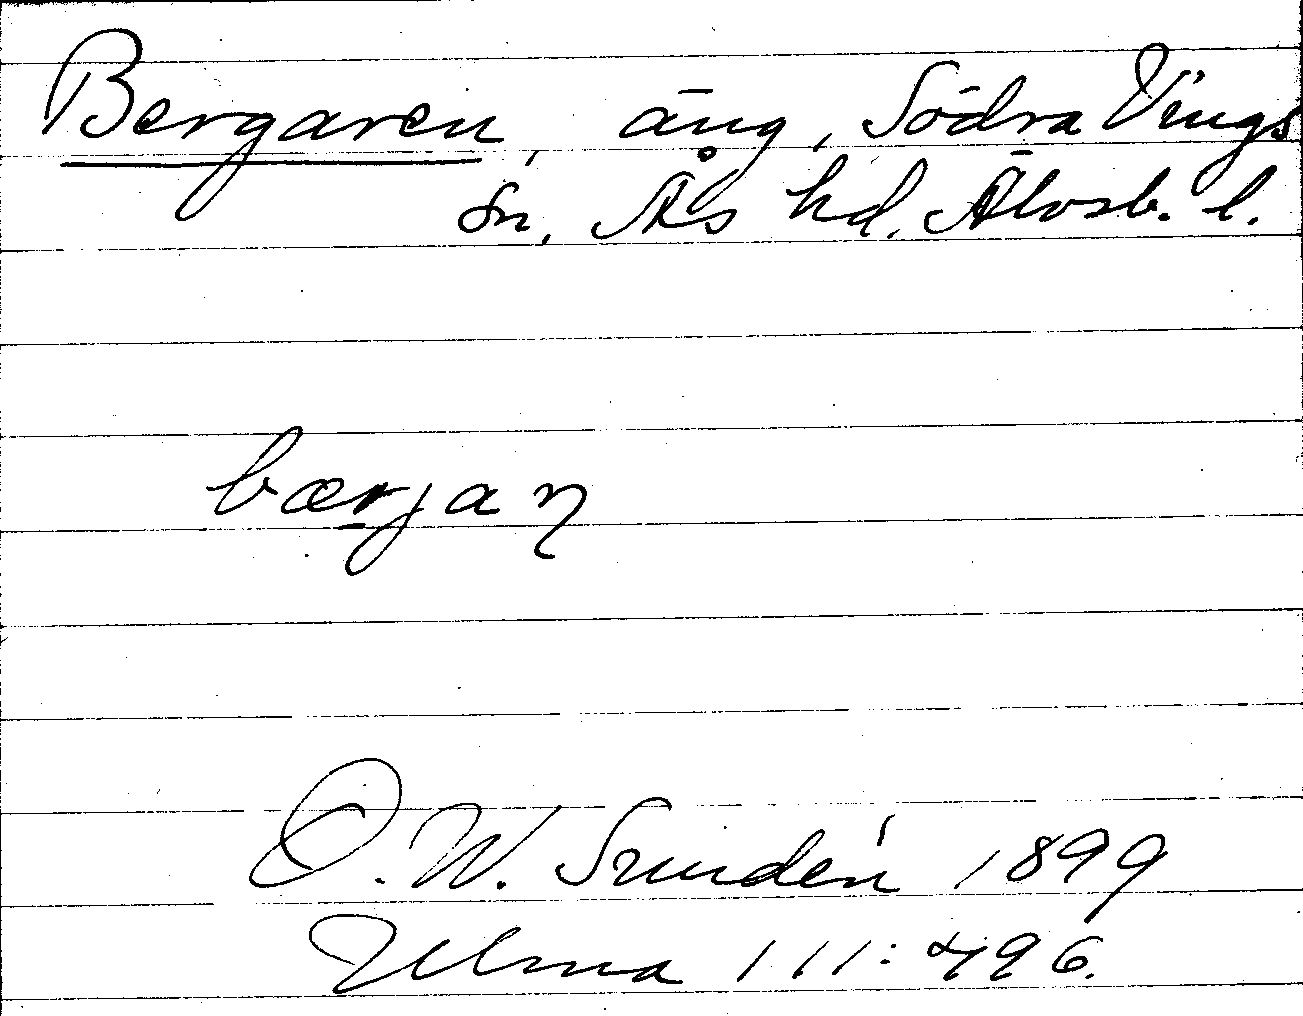 Bergaren, äng, Södra Vings
sn, Ås hd, Älvsb. l.
bærjaɳ
D. W. Sundén 1899
Ulma 111:496.